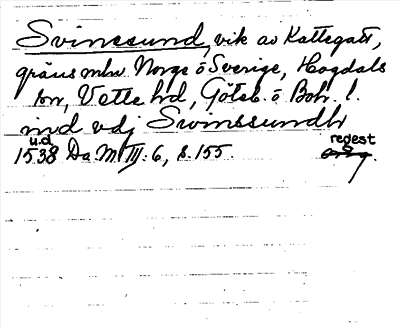 Svinesund, vik av Kattegatt,
gräns mlw. Norge o Sverige, Hogdals
sn, Vette hd, Göteb. o Boh. l.
nvd vdj Swinssundh
u.d. redest
1538 Da. M III: 6, s. 155. orig.